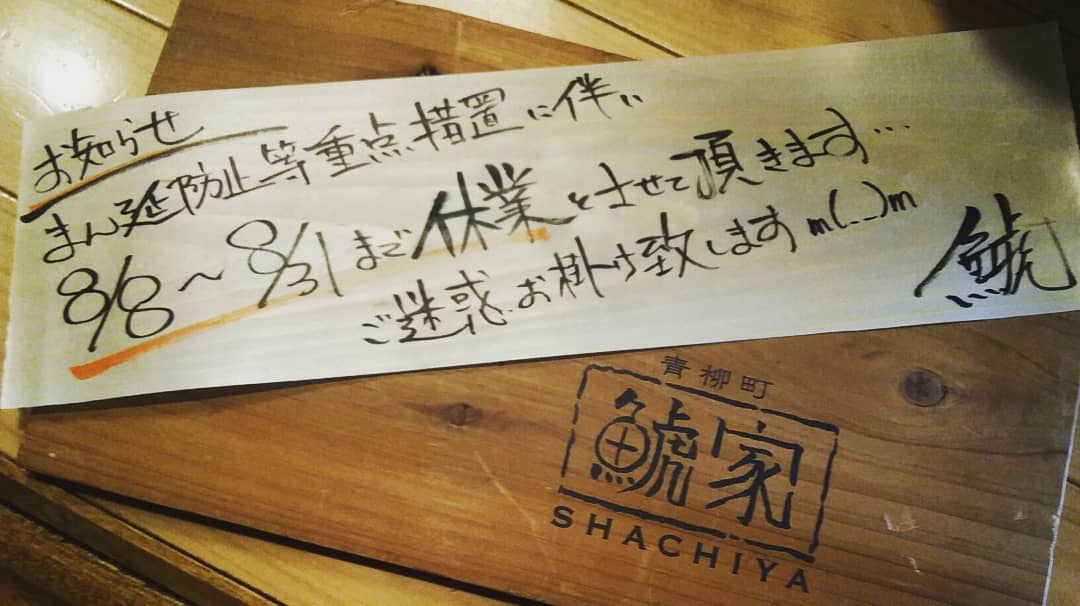 お知らせ
まん延防止等重点措置に伴い
8/8～8/31まで休業とさせて頂きます…
ご迷惑お掛け致しますm(_ _)m
鯱
青柳町
鯱家
SHACHIYA